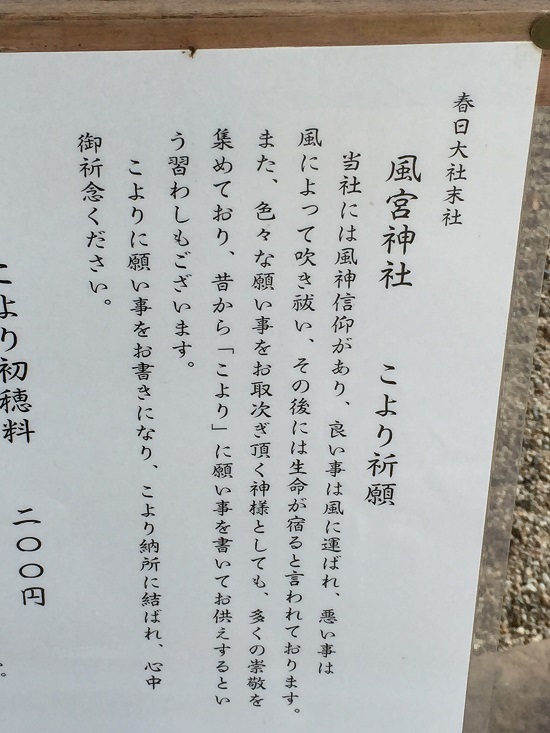 春日大社末社
風宮神社 こより祈願
当社には風神信仰があり、良い事は風に運ばれ、悪い事は
風によって吹き祓い、その後には生命が宿ると言われております。
また、色々な願い事をお取次ぎ頂く神様としても、多くの崇敬を
集めており、昔から「こより」に願い事を書いてお供えするとい
う習わしもございます。
こよりに願い事をお書きになり、こより納所に結ばれ、心中
御祈念ください。
こより初穂料 二〇〇円